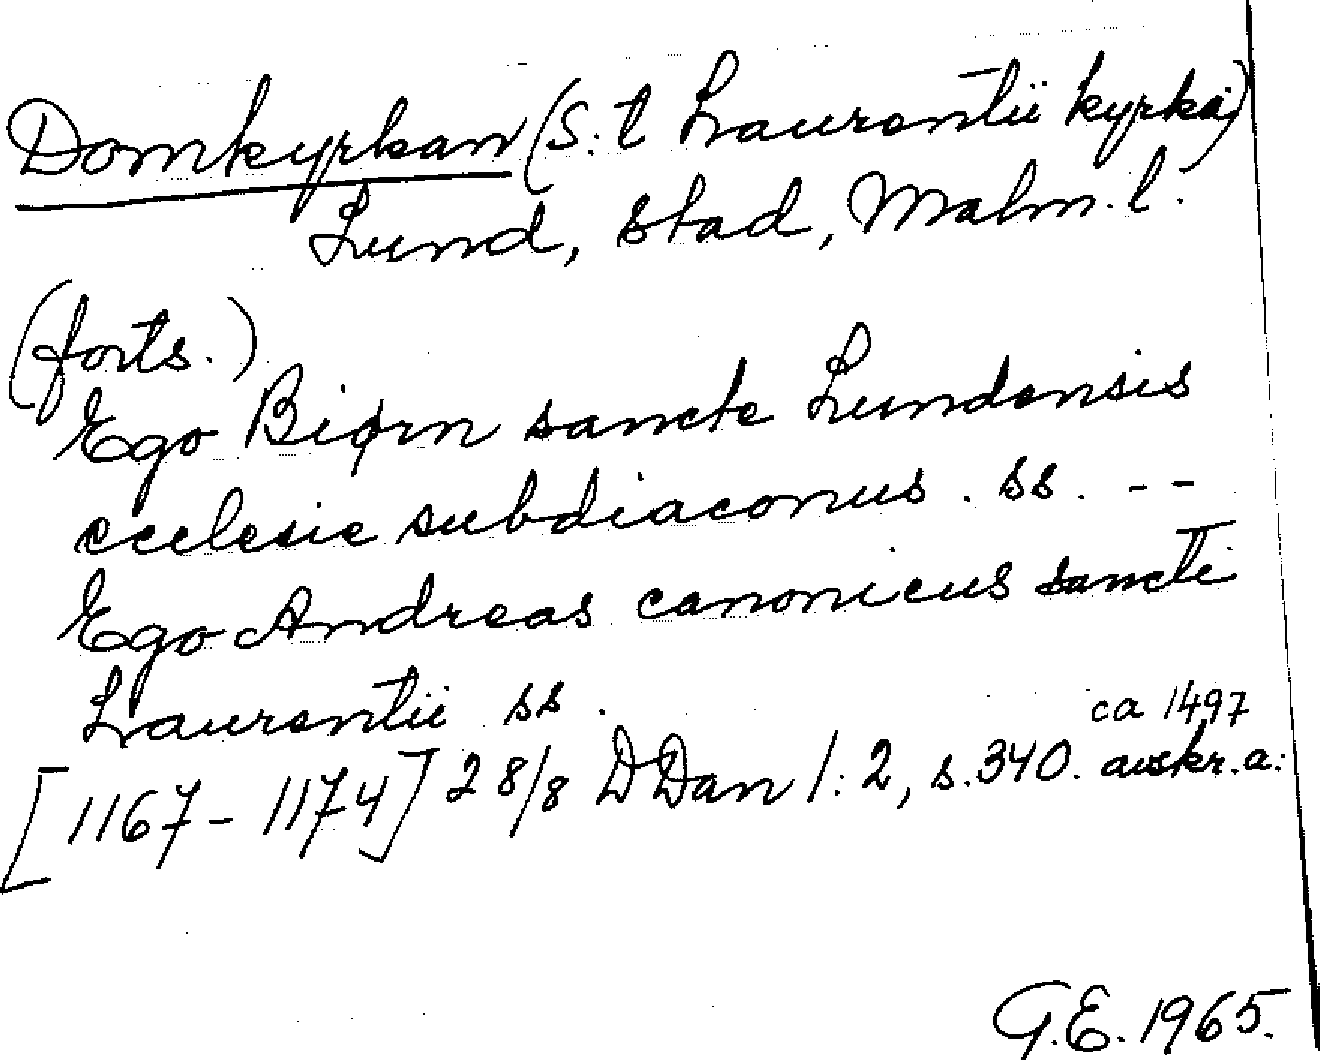 Domkyrkan (S:t Laurentii kyrka)
Lund, stad, Malm. l.
(forts.)
Ego Biørn sancte Lundensis
ecclesie subdiaconus. ss. --
Ego Andreas canonicus sancti
Laurentii ss.
ca 1497
[1167-1174] 28/8 DDan 1:2, s.340. avskr. a:
G.E. 1965.